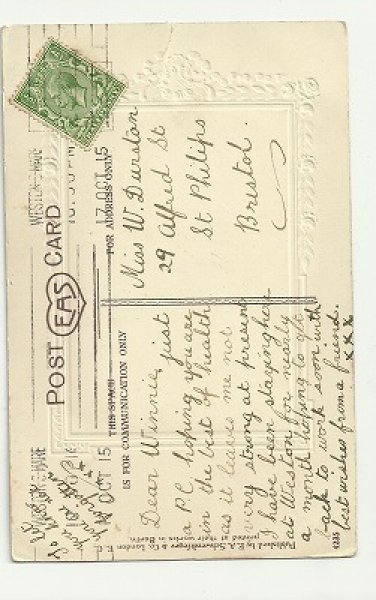 POST EAS CARD
THIS SPACE IS FOR COMMUNICATION ONLY
FOR ADDRESS ONLY
WESTON-S-MARE
10.30 PM
17 OCT 15
OCT 15
Dear Winnie, just
a P.C. hoping you are
in the best of health
as it leaves me not
very strong at present
I have been staying here
at Weston for nearly
a month hoping to get
back to work soon with
best wishes from a friend.
x x x
Miss W. Durston
29 Alfred St
St Philips
Bristol.
Published by E.A. Schwerdtfeger & Co. London E.C.
printed at their works in Berlin.
4235